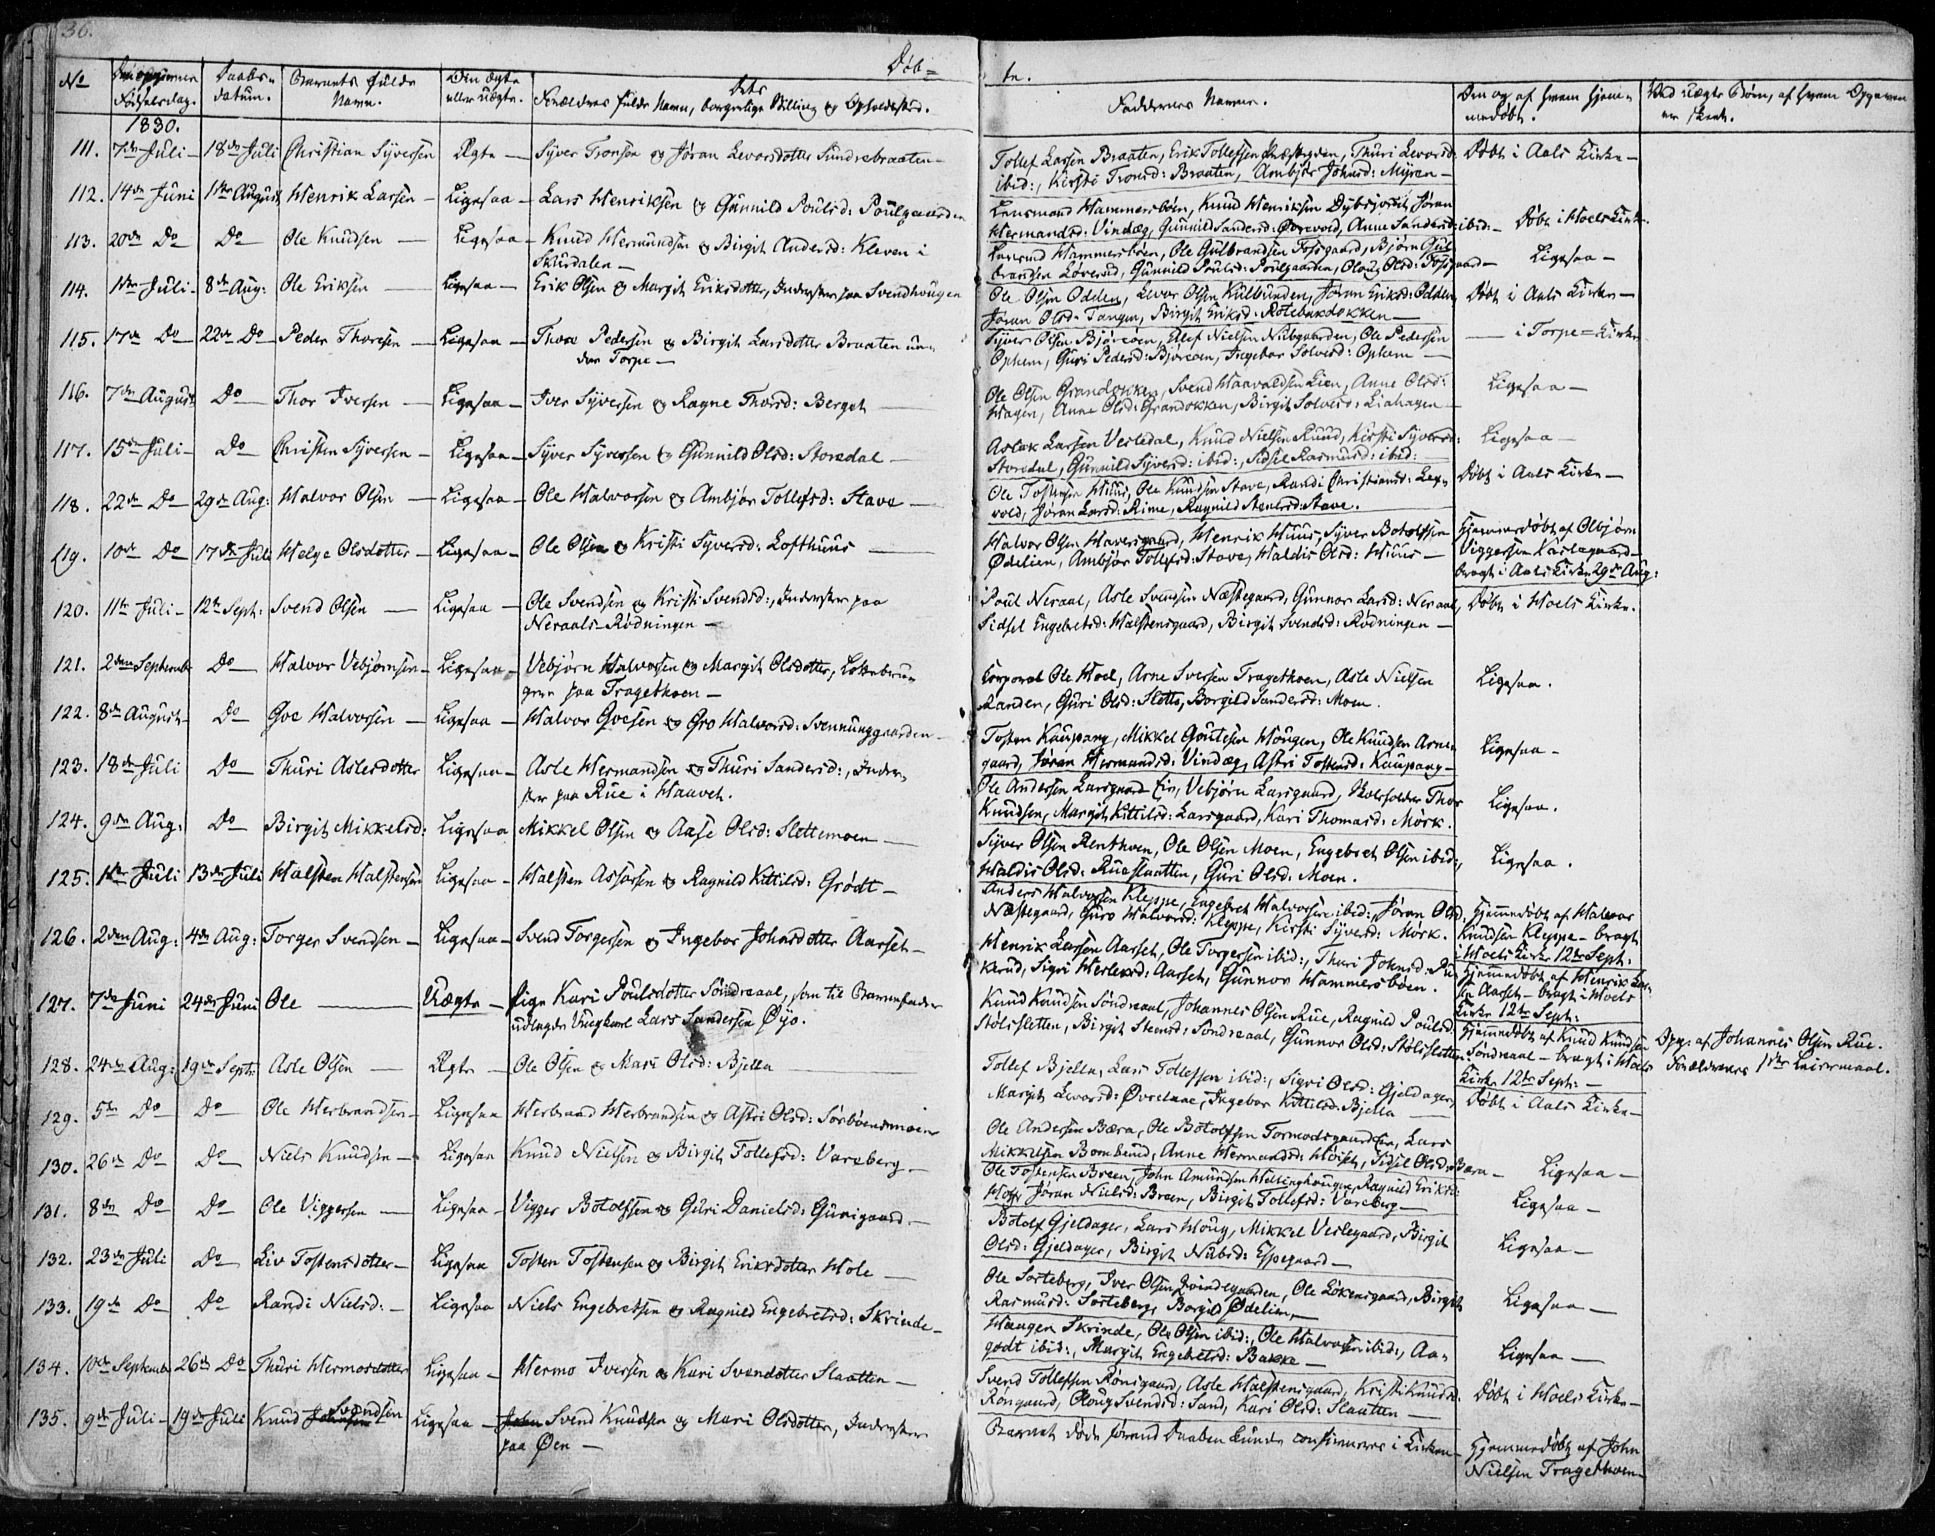 36.
Døb=
te.
No
Fødselsdag.
Daabs-
datum.
Barnets fulde
Navn.
Om ægte
eller uægte.
Forældres fulde Navn, borgerlige Stilling og Opholdssted.
Faddernes Navne.
Om og af hvem hjem-
medøbt.
Ved uægte Børn, af hvem Opgaven
er skeet.
1830.
111. 7de Juli 18de Juli Christian Syversen Ægte Syver Tronsen og Jøran Levorsdotter Sundrebraaten
Tollef Larsen Braaten, Erik Tollefsen, Thuri Levorsd:
ibid:, Kirsti Tronsd: Braaten, Ambjør Johnsd: Myren
Døbt i Aals Kirke
112. 14de Juni 1ste August Henrik Larsen Ligesaa Lars Henriksen og Gunnild Poulsd: Poulgaarden
Lensmand Hammersbøen, Knud Henriksen Dybsjord, Jøran
Hermandsd: Vindæg, Gunnild Sandersd: Ørevold, Anne Sandersd: ibid:
Døbt i Hoels Kirke
113. 20de Do Do Ole Knudsen Ligesaa Knud Hermundsen og Birgit Andersd: Kleven i
Skurdalen
Lensmd Hammersbøen, Ole Gulbrandsen Tofsgaard, Bjørn Gul-
brandsen Løverud, Gunnild Poulsd: Poulgaarden, Oloug Olsd: Tofsgaard
Ligesaa
114. 1ste Juli 8de Aug: Ole Eriksen Ligesaa Erik Olsen og Margit Eriksdotter, Inderster paa Svendhougen
Ole Olsen Odden, Levor Olsen Kulbunden, Jøran Eriksd: Odden
Jøran Olsd: Tangen, Birgit Eriksd: Rotebækdokken
Døbt i Aals Kirke
115. 17de Do 22de Do Peder Thoresen Ligesaa Thore Pedersen og Birgit Larsdotter Braaten un-
der Torpe
Syver Olsen Bjøreøen, Elef Nielsen Nubgaarden, Ole Pedersen
Ophem, Guri Pedersd: Bjøreøen, Ingebor Solversd: Ophem
i Torpe=Kirke
116. 7de August Do Thor Iversen Ligesaa Iver Syversen og Ragne Thorsd: Berget
Ole Olsen Grandokken, Svend Haavaldsen Lien, Anne Olsd:
Hagen, Anne Olsd: Grandokken, Birgit Solversd: Liahagen
Ligesaa
117. 15de Juli Do Christen Syversen Ligesaa Syver Syversen og Gunnild Olsd: Storedal
Aslak Larsen Vesledal, Knud Nielsen Ruud, Kirsti Syversd:
Storedal, Gunnild Syversd: ibid:, Sidsel Rasmusd: ibid:
Ligesaa
118. 22de Do 29de Aug: Halvor Olsen Ligesaa Ole Halvorsen og Ambjør Tollefsd: Stave
Ole Tostensen Huus, Ole Knudsen Stave, Randi Christiansd: Lee-
vold, Jøran Larsd: Rime, Ragnild Steensd: Stave.
Døbt i Aals Kirke
119. 10de Do 17de Juli Helge Olsdotter Ligesaa Ole Olsen og Kristi Syversd: Lofthuus
Halvor Olsen Haversgaard, Henrik Huus, Syver Botolfsen
Ødelien, Ambjør Tollefsd: Stave, Haldis Olsd: Huus
Hjemmedøbt af Olbjørn
Viggersen Karlsgaard
bragt i Aals Kirke 29de Aug:
120. 11te Juli 12te Sept: Svend Olsen Ligesaa Ole Svendsen og Kristi Svendsd:, Inderster paa
Neraals-Rødningen
Poul Neraal, Asle Svendsen Næstegaard, Gunnor Larsd: Neraal,
Sidsel Engebretsd: Halstensgaard, Birgit Svendsd: Rødningen
Døbt i Hoels Kirke.
121. 2den September Do Halvor Vebjørnsen Ligesaa Vebjørn Halvorsen og Margit Olsdotter, Lottebrug-
gere paa Tragethoen
Corporal Ole Hoel, Arne Iversen Tragethoen, Asle Nielsen
Randen, Guri Olsd: Slotto, Borgild Sandersd: Moen.
Ligesaa.
122. 8de August Do Goe Halvorsen Ligesaa Halvor Goesen og Gro Halvorsd: Svennunggaarden
Tosten Kaupang, Mikkel Goutesen Hougen, Ole Knudsen Arne-
gaard, Jøran Hermandsd: Vindæg, Astri Tostensd: Kaupang
Ligesaa
123. 18de Juli Do Thuri Aslesdotter Ligesaa Asle Hermandsen og Thuri Sandersd:, Inder-
ster paa Rue i Haavet.
Ole Andersen Larsgaard Eie, Vebjørn Larsgaard, Skoleholder Thor
Knudsen, Margit Kittilsd: Larsgaard, Kari Thomasd: Mørk.
Ligesaa.
124. 9de Aug: Do Birgit Mikkelsd: Ligesaa Mikkel Olsen og Aase Olsd: Slettemoen
Syver Olsen Renthoen, Ole Olsen Moen, Engebret Olsen ibid:,
Haldis Olsd: Rueslaatten, Guri Olsd: Moen.
Ligesaa.
125. 1ste Juli 13de Juli Halsten Halstensen Ligesaa Halsten Assorsen og Ragnild Kittilsd: Grødt
Anders Halvorsen Kleppe, Engebret Halvorsen ibid:, Jøran Olsd:
Næstegaard, Guro Halvorsd: Kleppe, Kirsti Syversd: Mørk.
Hjemmedøbt af Halvor
Knudsen Kleppe bragt
i Hoels Kirke 12te Sept:
126. 2den Aug: 4de Aug: Torger Svendsen Ligesaa Svend Torgersen og Ingebor Johnsdotter Aarset
Henrik Larsen Aarset, Ole Torgersen ibid:, Thuri Johnsd:
Sigri Herlevsd: Aarset, Gunnor Hammersbøen.
Hjemmedøbt af Henrik Lar-
sen Aarset bragt i Hoels
Kirke 12te Sept:
127. 7de Juni 24de Juni Ole Uægte Pige Kari Poulsdotter Søndreaal, som til Barnefader
udlagde Ungkarl Lars Sandersen Øyo.
Knud Knudsen Søndreaal, Johannes Olsen Rue, Ragnild Poulsd:
Stølsletten, Birgit Steensd: Søndreaal, Gunnor Olsd: Stølsletten
Hjemmedøbt af Knud Knudsen
Søndreaal bragt i Hoels
Kirke 12te Sept:
Opg: af Johannes Olsen Rue.
Forældrenes 1ste Leiermaal.
128. 24de Aug: 19de Sept: Asle Olsen Ægte Ole Olsen og Mari Olsd: Bjella
Tollef Bjella, Lars Tollefsen ibid:, Sigri Olsd: Gjeldager,
Margit Levorsd: Øvrelaae, Ingebor Kittilsd: Bjella
Døbt i Aals Kirke
129. 5te Do Do Ole Herbrandsen Ligesaa Herbrand Herbrandsen og Astri Olsd: Sørbøensmoen
Ole Andersen Bæra, Ole Botolfsen Tormodsgaard Eie, Lars
Mikkelsen Bomberud, Anne Hermandsd: Hoiset, Sidsel Olsd: Bæra
Ligesaa
130. 26de Do Do Niels Knudsen Ligesaa Knud Nielsen og Birgit Tollefsd: Vareberg
Ole Tostensen Breen, John Amundsen Hallinghougen, Ragnild Eriksd:
Jøran Nielsd: Breen, Birgit Tollefsd: Vareberg
Ligesaa
131. 8de Do Do Ole Viggersen Ligesaa Vigger Botolfsen og Guri Danielsd: Gunigaard
Botolf Gjeldager, Lars Houg, Mikkel Veslegaard, Birgit
Olsd: Gjeldager, Birgit Nubsd: Espegaard
Ligesaa
132. 23de Juli Do Liv Tostensdotter Ligesaa Tosten Tostensen og Birgit Eriksdotter Hole
Ole Sorteberg, Iver Olsen, Ole Lokensgaard, Birgit
Rasmusd: Sorteberg, Borgild Ødelien
Ligesaa
133. 19de Do Do Randi Nielsd: Ligesaa Niels Engebretsen og Ragnild Engebretsd: Skrinde
Haagen Skrinde, Ole Olsen ibid:, Ole Halvorsen ibid:, Aa-
godt ibid:, Margit Engebretsd: Bakke
Ligesaa
134. 10de September 26de Do Thuri Hermosdotter Ligesaa Hermo Iversen og Kari Svendotter Slaatten
Svend Tollefsen Rønsgaard, Asle Halstensgaard, Kristi Knudsd:
Rønsgaard, Oloug Svendsd: Sand, Kari Olsd: Slaatten
Døbt i Hoels Kirke
135. 9de Juli 19de Juli Knud Johnsen Svendsen Ligesaa John Svend Knudsen og Mari Olsdotter, Inderster
paa Øen
Barnet døde førend Daaben kunde confirmeres i Kirken
Hjemmedøbt af John
Nielsen Tragethoen